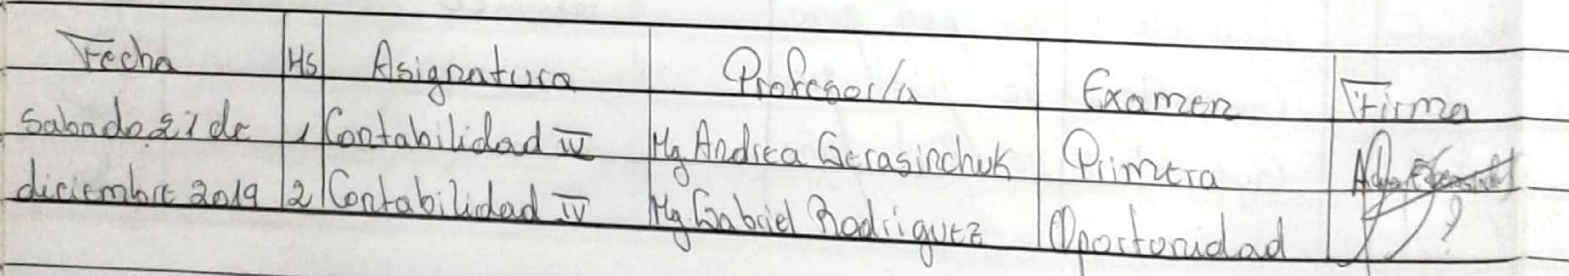 Fecha Hs Asignatura Profesor/a Examen Firma
Sabado 21 de 1 Contabilidad IV Mg Andrea Gerasinchuk Primera
diciembre 2019 2 Contabilidad IV Mg Gabriel Rodriguez Oportunidad